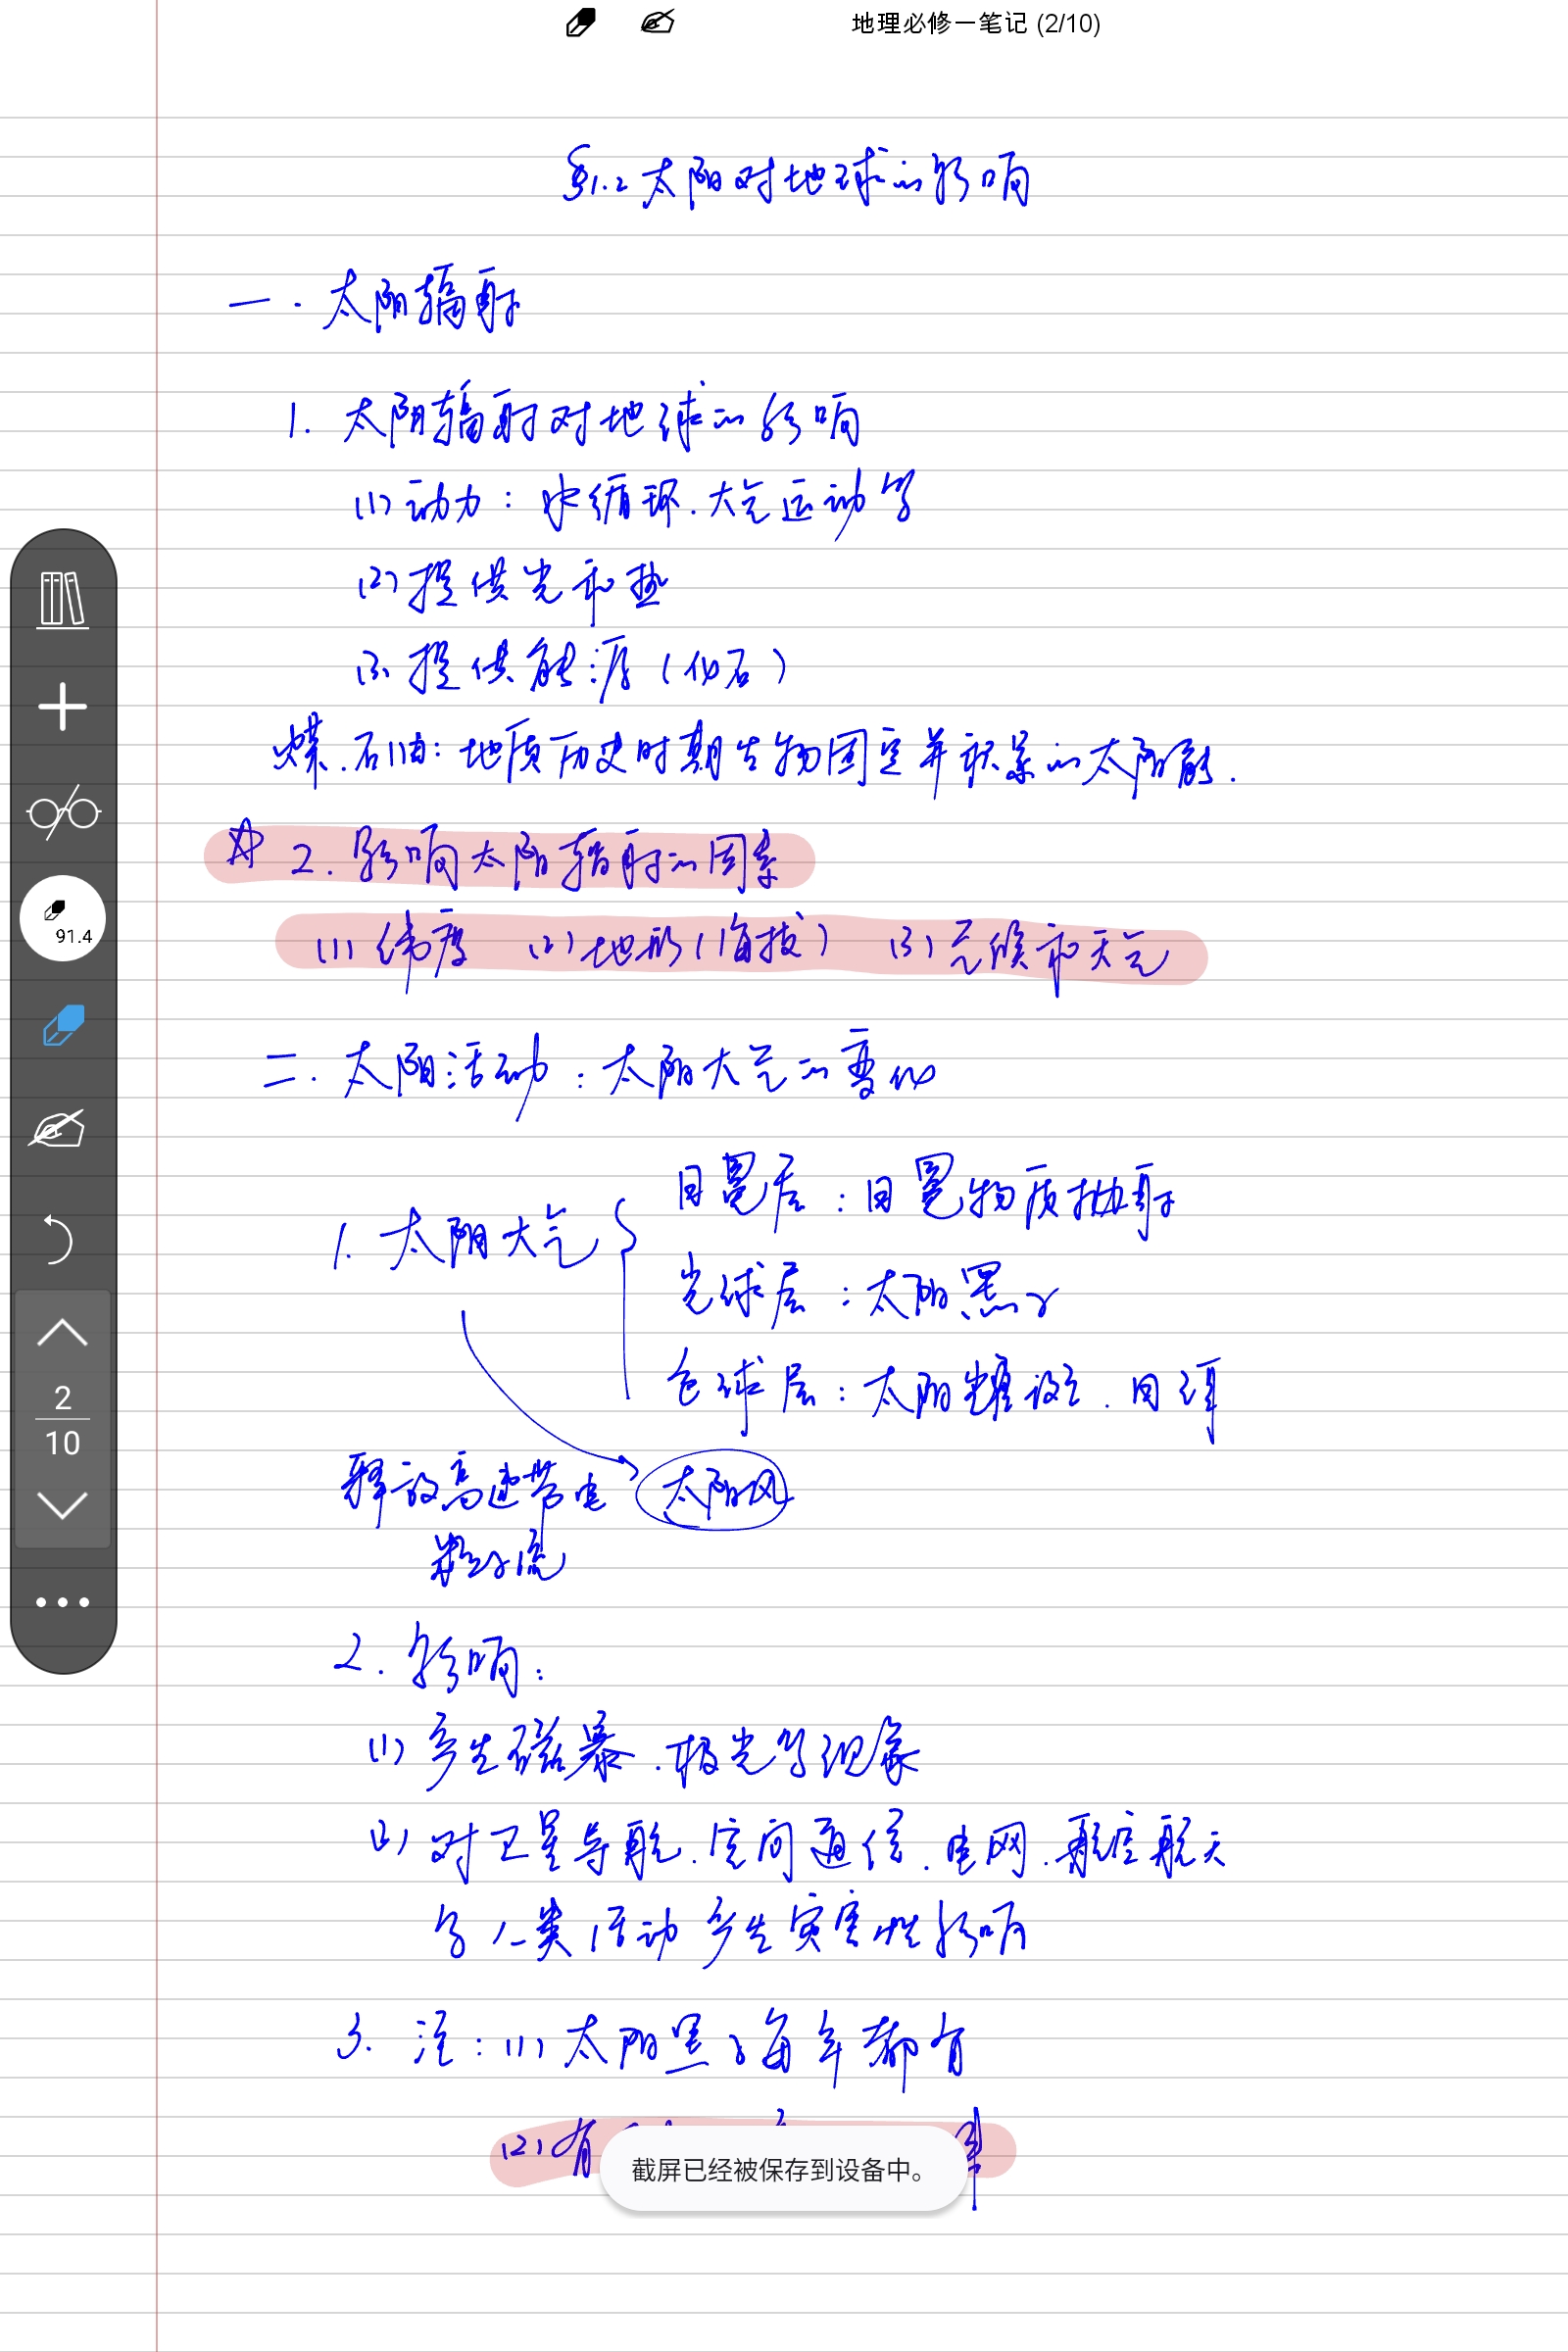 地理必修一笔记 (2/10)
§1.2 太阳对地球的影响
一.太阳辐射
1. 太阳辐射对地球的影响
(1) 动力：水循环.大气运动等
(2) 提供光和热
(3) 提供能源（化石）
煤.石油：地质历史时期生物固定并积累的太阳能.
☆ 2. 影响太阳辐射的因素
(1) 纬度 (2) 地形(海拔) (3) 气候和天气
二.太阳活动：太阳大气的变化
1. 太阳大气
日冕层：日冕物质抛射
光球层：太阳黑子
色球层：太阳耀斑.日珥
释放高速带电 太阳风
粒子流
2. 影响：
(1) 产生磁暴.极光等现象
(2) 对卫星导航.空间通信.电网.航空航天
等人类活动产生灾害性影响
3. 注：(1) 太阳黑子每年都有
(2) 有
截屏已经被保存到设备中。
91.4
2
10